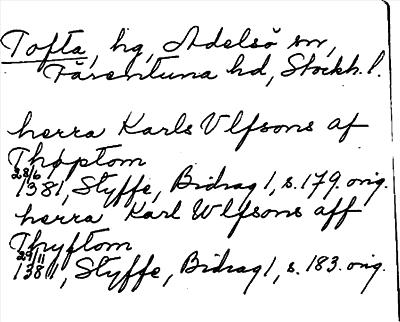 Tofta, hg, Adelsö sn,
Färentuna hd, Stockh. l.
herra Karls Vlfsons af
Thoptom
28/6 1381, Styffe, Bidrag 1, s. 179. orig.
herra Karl Wlfsons aff
Thyftom
29/11 1381, Styffe, Bidrag 1, s. 183. orig.